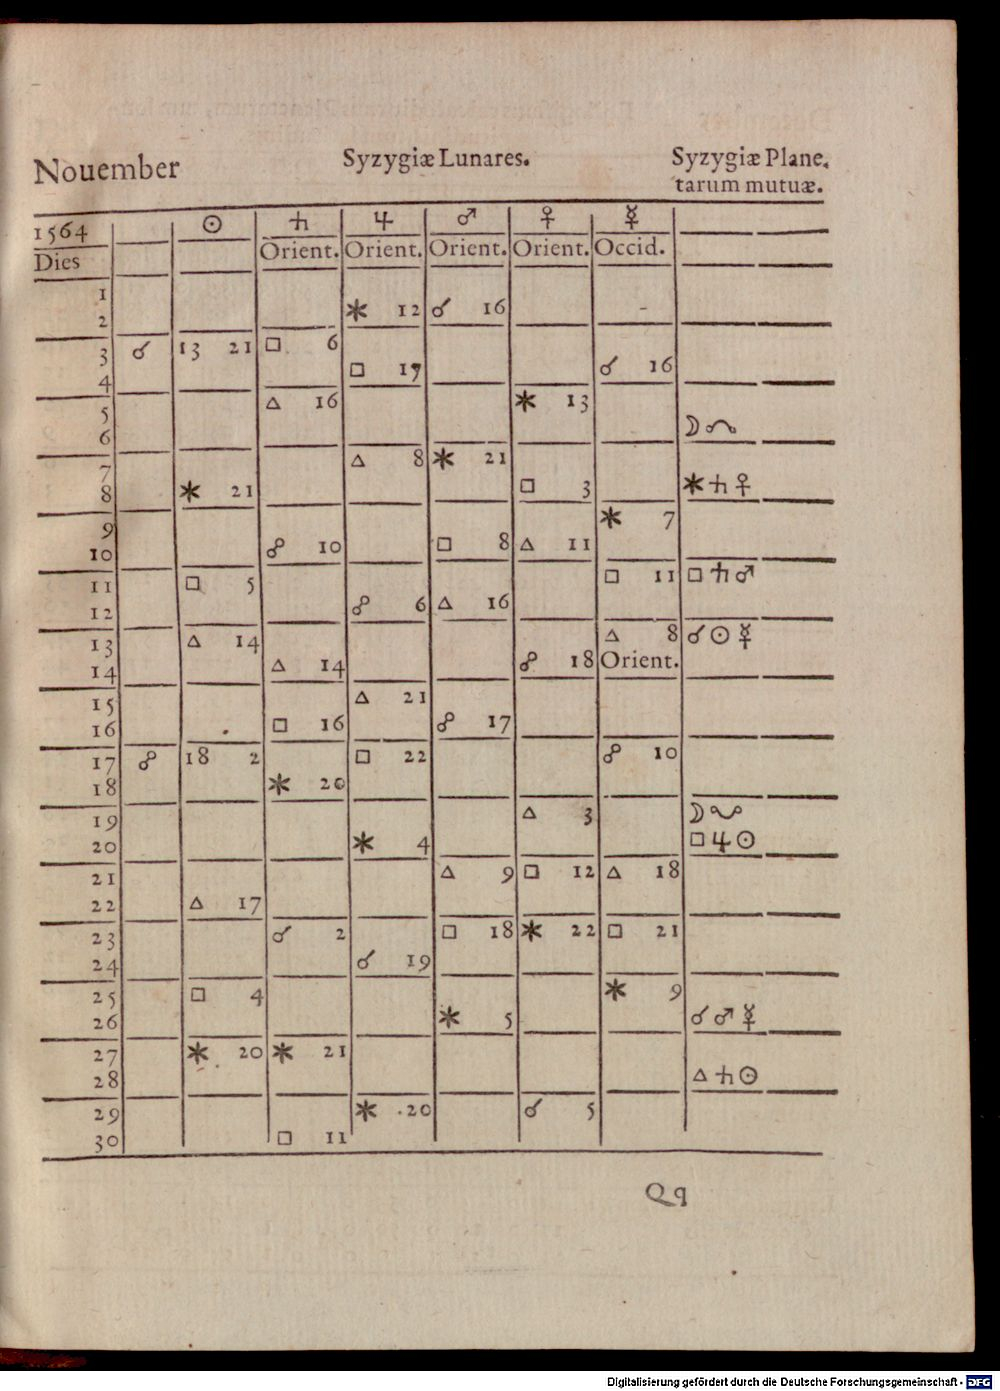 Nouember Syzygiæ Lunares. Syzygiæ Plane,
tarum mutuæ.
1564 ☉ ♄ ♃ ♂ ♀ ☿
Dies Orient. Orient. Orient. Orient. Occid.
1
2 ⚹ 12 ☌ 16
3 ☌ 13 21 □ 6
4 □ 17 ☌ 16
5 △ 16 ⚹ 13
6 ☽ ☊
7 △ 8 ⚹ 21
8 ⚹ 21 □ 3 ⚹ ♄ ♀
9 ⚹ 7
10 ☍ 10 □ 8 △ 11
11 □ 5 □ 11 □ ♄ ♂
12 ☍ 6 △ 16
13 △ 14 △ 8 ☌ ☉ ☿
14 △ 14 ☍ 18 Orient.
15 △ 21
16 □ 16 ☍ 17
17 ☍ 18 2 □ 22 ☍ 10
18 ⚹ 20
19 △ 3 ☽ ☋
20 ⚹ 4 □ ♃ ☉
21 △ 9 □ 12 △ 18
22 △ 17
23 ☌ 2 □ 18 ⚹ 22 □ 21
24 ☌ 19
25 □ 4 ⚹ 9
26 ⚹ 5 ☌ ♂ ☿
27 ⚹ 20 ⚹ 21
28 △ ♄ ☉
29 ⚹ 20 ☌ 5
30 □ 11
Qq
Digitalisierung gefördert durch die Deutsche Forschungsgemeinschaft - DFG